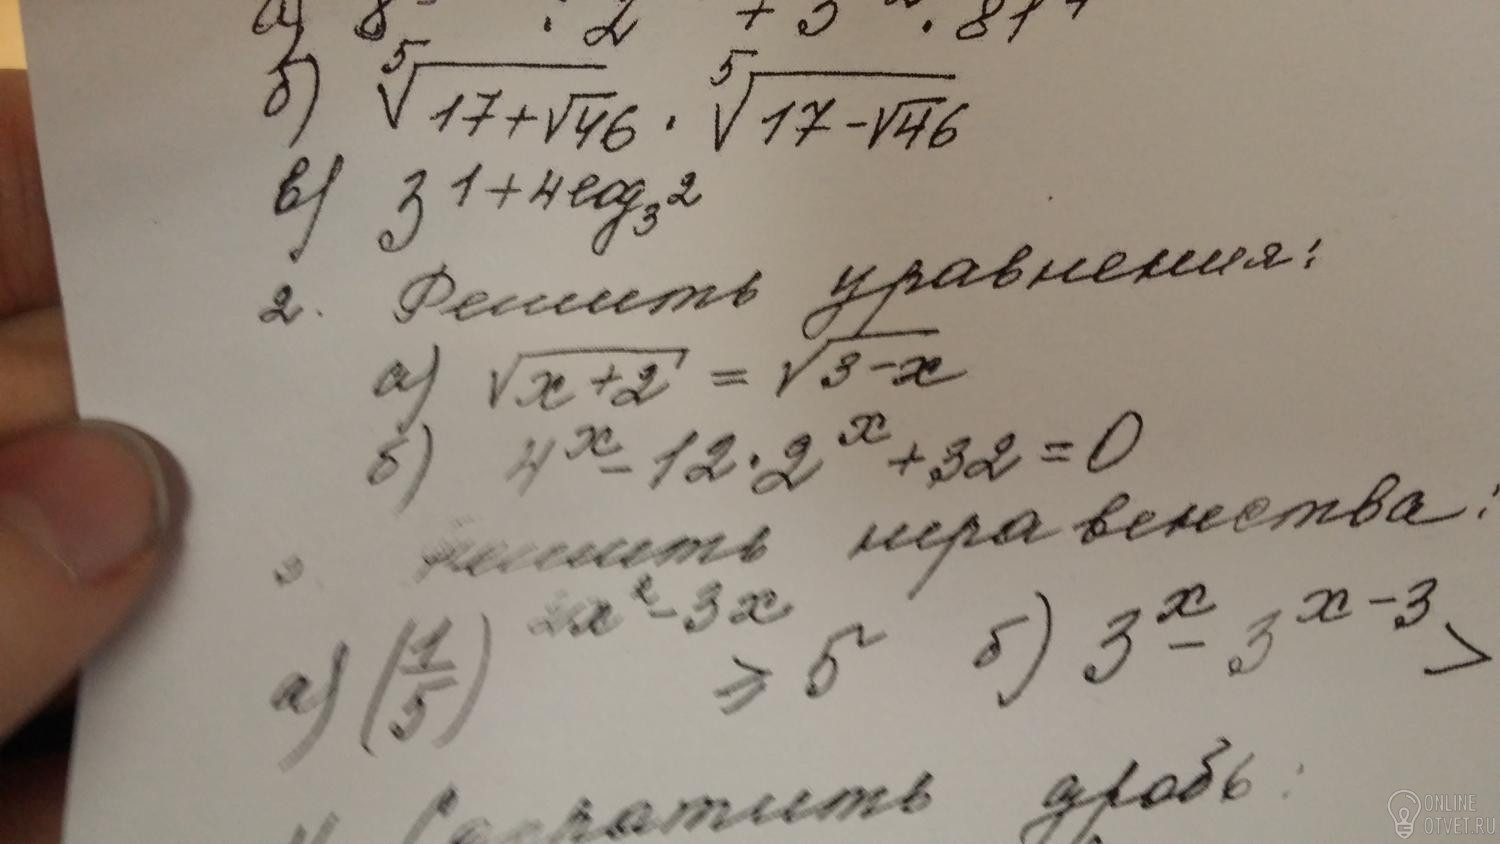 б) ⁵√(17+√46) · ⁵√(17-√46)
в) 3^(1+4log₃2)
2. Решить уравнения:
а) √(x+2) = √(3-x)
б) 4^x - 12·2^x + 32 = 0
Решить неравенства:
а) (1/5)^(2x²-3x) ≥ 5 б) 3^x - 3^(x-3) >
Сократить дробь:
ONLINE
OTVET.RU